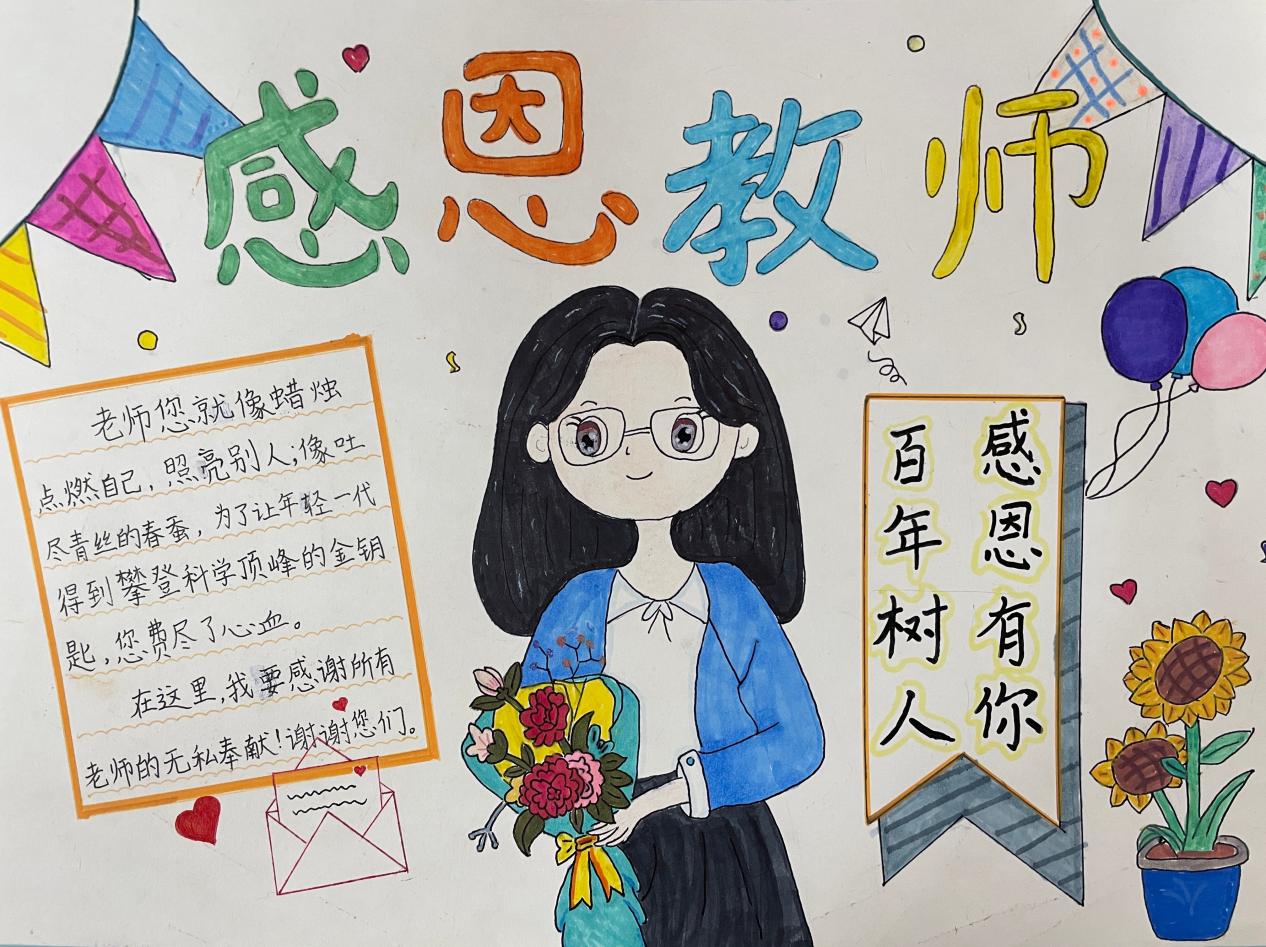 感恩教师
老师您就像蜡烛
点燃自己，照亮别人；像吐
尽青丝的春蚕，为了让年轻一代
得到攀登科学顶峰的金钥
匙，您费尽了心血。
在这里，我要感谢所有
老师的无私奉献！谢谢您们。
感恩有你
百年树人